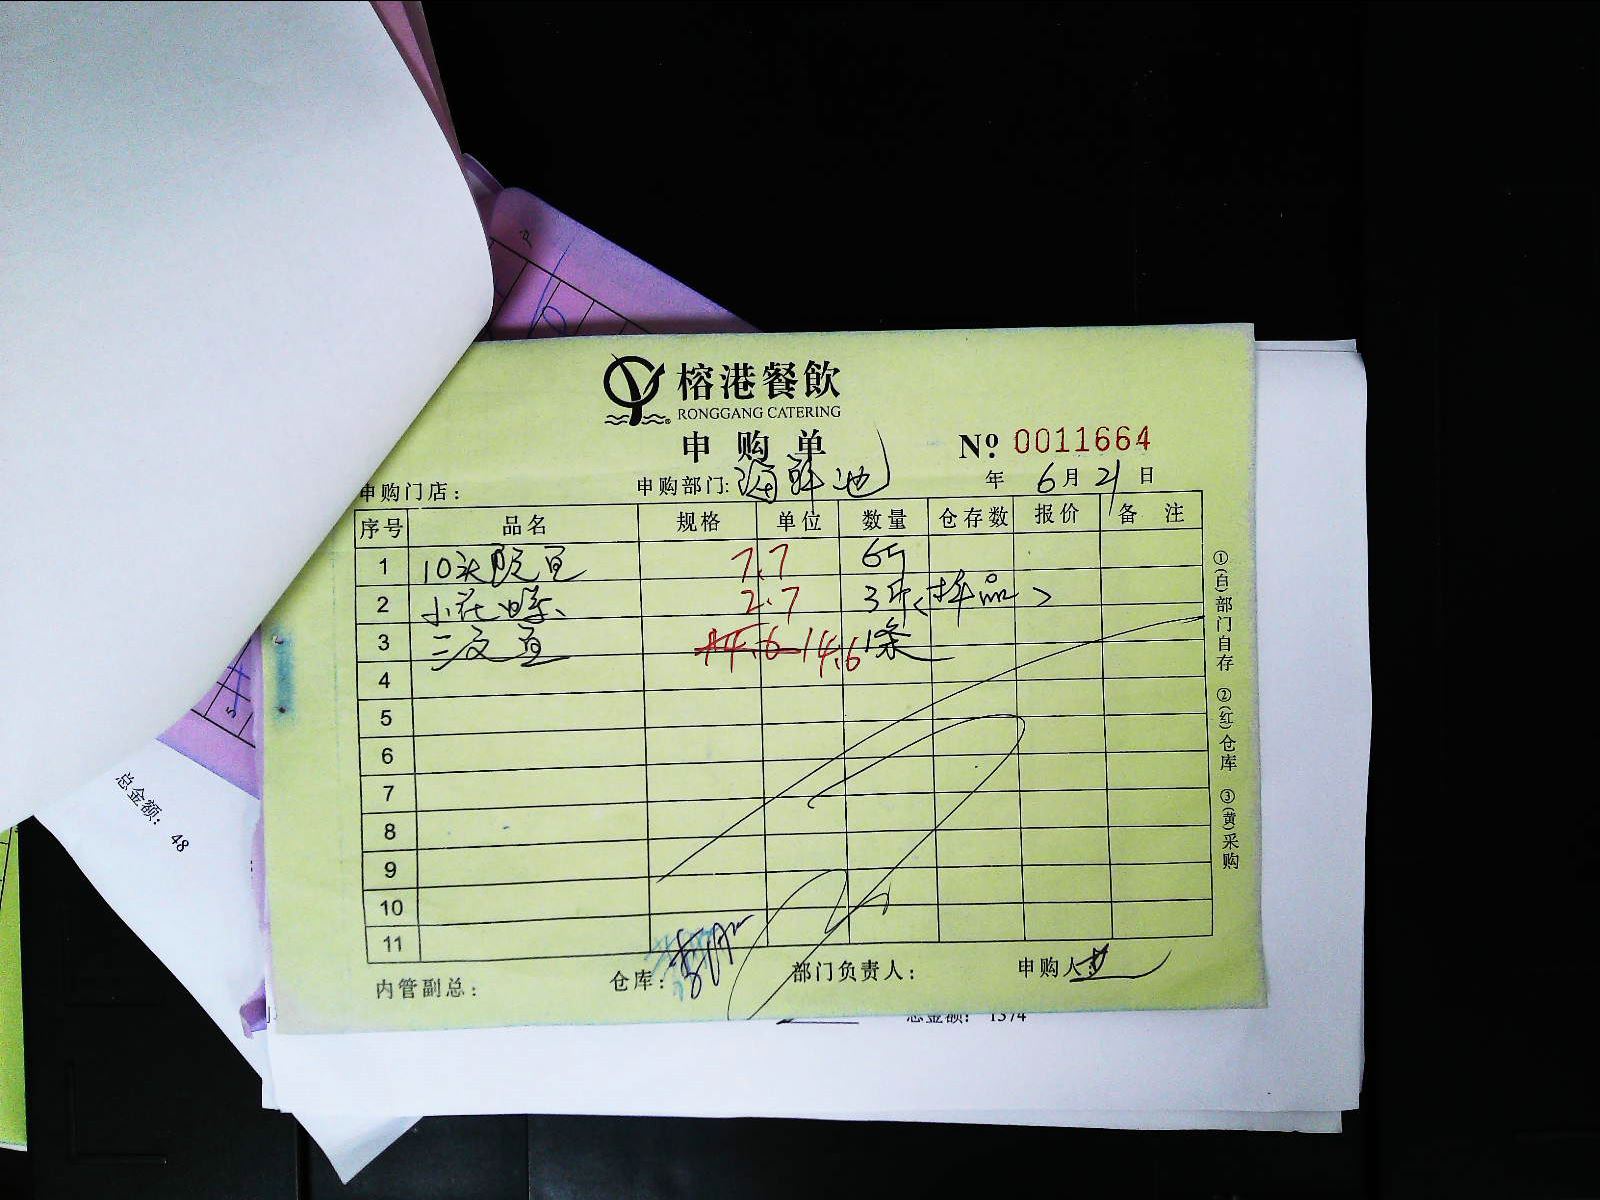 榕港餐飲
RONGGANG CATERING
申购单
Nº: 0011664
申购门店: 申购部门: 海鲜池 年 6月21日
序号 品名 规格 单位 数量 仓存数 报价 备注
1 10头 7.7 6斤
2 小花 2.7 3斤<样品>
3 14.6 1条
4
5
6
7
8
9
10
11
内管副总: 仓库: 部门负责人: 申购人:
①(白)部门自存 ②(红)仓库 ③(黄)采购
总金额: 48
总金额: 1374